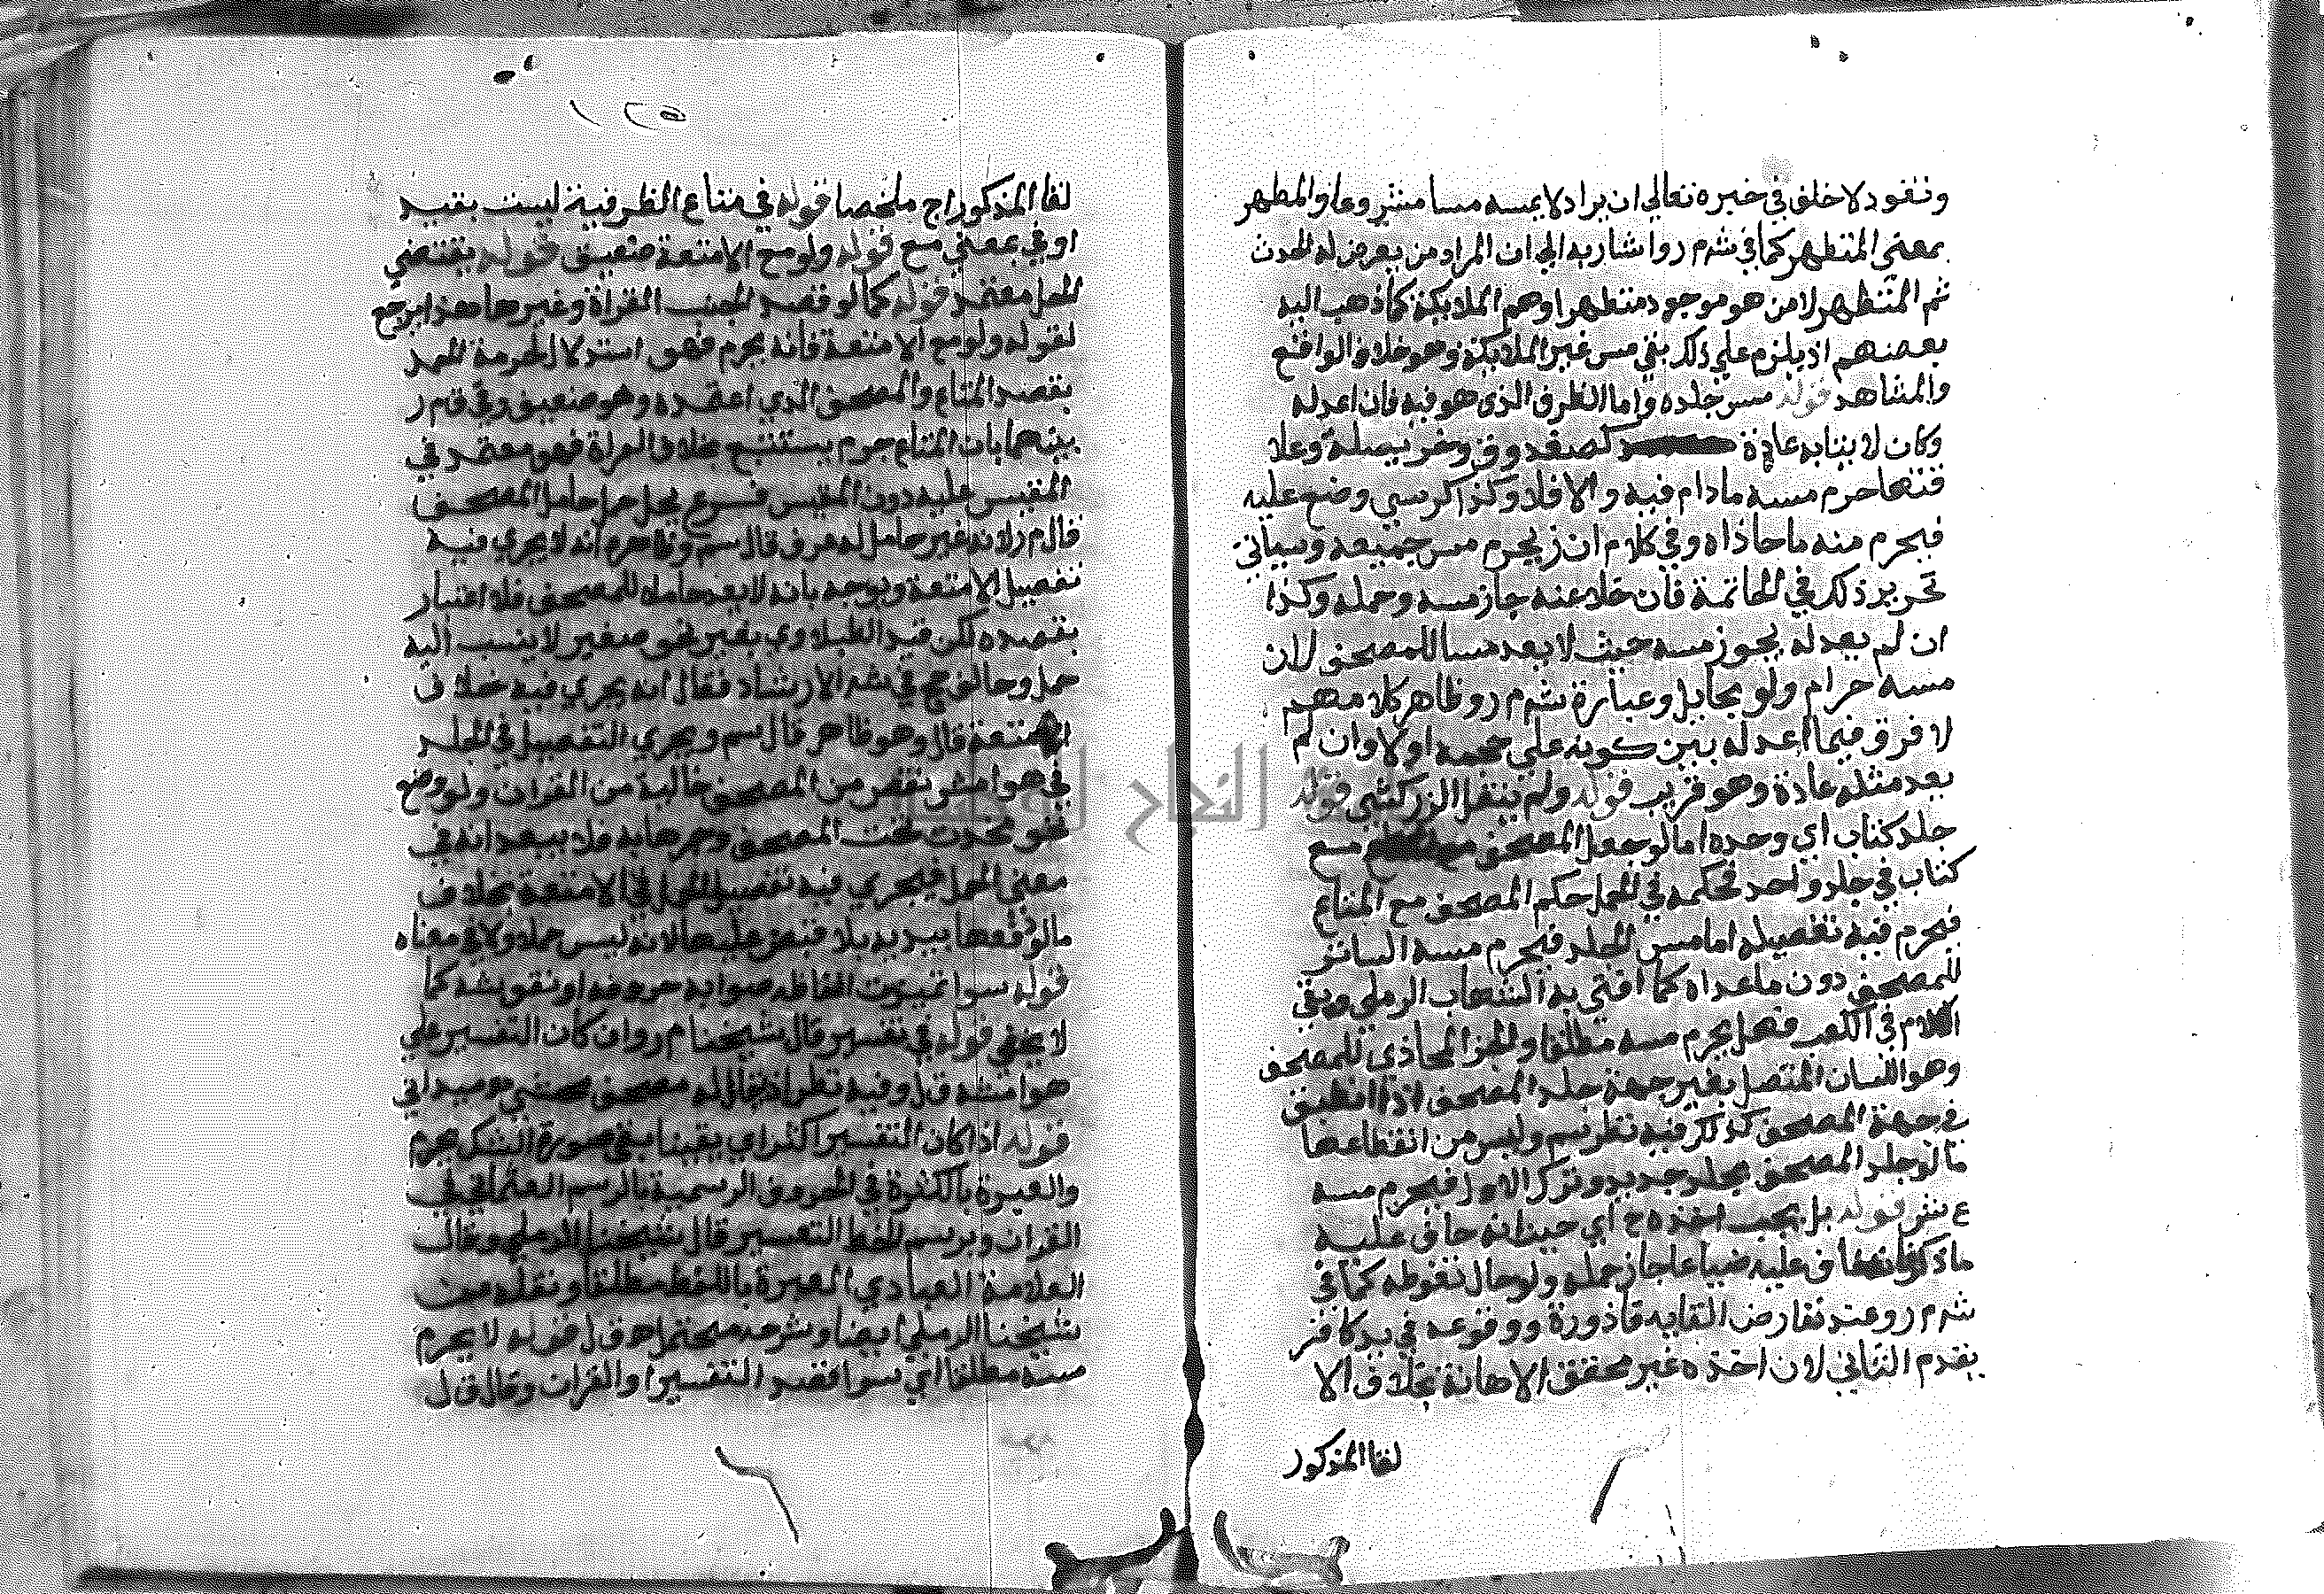 ونقود لا خلف في خبره تعالى ان يراد لا يمسه مسا مشروعا والمطهر
بمعنى المتطهر كما في شرم ر واشار به الى ان المراد من يعرض له الحدث
ثم المتطهر لا من هو موجود متطهرا وهم الملايكة كما ذهب اليه
بعضهم اذ يلزم على ذلك نفي مس غير الملايكة وهو خلاف الواقع
والمشاهد قوله مس جلده واما الظرف الذي هو فيه فان اعد له
وكان لا يقابه عادة كصندوق وخريطة وعلا
قتها حرم مسه مادام فيه والا فلا وكذا كرسي وضع عليه
فيحرم منه ما حاذاه وفي كلام ان ز يحرم مس جميعه وسياتي
تحرير ذلك في الخاتمة فان خلا عنه جاز مسه وحمله وكذا
ان لم يعد له يجوز مسه حيث لا يعد مسا للمصحف لان
مسه حرام ولو بحايل وعبارة شرم ر وظاهر كلامهم
لا فرق فيما اعد له بين كونه على حجمه اولا وان لم
يعد مثله عادة وهو قريب قوله ولم ينقل الزركشي قوله
جلد كتاب اي وحده اما لو جعل المصحف مع
كتاب في جلد واحد فحكمه في الحمل حكم المصحف مع المتاع
فيحرم فيه تفصيله اما مس الجلد فيحرم مسه الساتر
للمصحف دون ما عداه كما افتى به الشهاب الرملي وبقي
الكلام في الكعب فهل يحرم مسه مطلقا والجز المحاذي للمصحف
وهو اللسان المتصل بغير جهة جلد المصحف اذا انطبق
في جهة المصحف كذلك فيه نظر سم وليس من انقطاعها
ما لو جلد المصحف بجلد جديد وترك الاول فيحرم مسه
ع ش قوله بل يجب اخذه ح اي حين اذ خاف عليه
ما ذكر فان خاف عليه ضياعا جاز حمله ولو حال تغوطه كما في
شرم ر وعند تعارض القايه قاذورة ووقوعه في يد كافر
يقدم الثاني لان اخذه غير محقق الاهانة بخلاف الا
لقا المذكور
١٢٥
لقا المذكور اج ملخصا قوله في متاع الظرفية ليست بقيد
او في بمعنى مع قوله ولو مع الامتعة ضعيف قوله يقتضي
الحل معتمد قوله كما لو قصد الجنب القراة وغيرها هذا يرجع
لقوله ولو مع الامتعة فانه يحرم فهو استدلال لحرمة الحمل
بقصد المتاع والمصحف الذي اعتمده وهو ضعيف وفرق م ر
بينهما بان المتاع جرم يستتبع بخلاف القراة فهو معتمد في
المقيس عليه دون المقيس فرع يحل حمل حامل المصحف
قال م ر لانه غير حامل له عرفا قال سم وظاهره انه لا يجري فيه
تفصيل الامتعة ويوجه بانه لا يعد حاملا للمصحف فلا اعتبار
بقصده لكن قيد الطبلاوي بغير نحو صغير لا ينسب اليه
حمل وخالف حج في شر الارشاد فقال انه يجري فيه خلاف
الامتعة قال وهو ظاهر قال سم ويجري التفصيل في الجلد
في هوامش نقص من المصحف خالية من القران ولو وضع
نحو تحت المصحف وجرها به فلا يبعد انه في
معنى الحمل فيجري فيه تفصيل الحمل في الامتعة بخلاف
ما لو دفعها بيديه بلا قبض عليها لانه ليس حملا ولا في معناه
قوله سوا تميزت الفاظه صوابه حروفه او نقوشه كما
لا يخفى قوله في تفسير قال شيخنا م ر وان كان التفسير على
هوامشه ق ل وفيه نظر اذ يقال له مصحف محشي ميداني
قوله اذا كان التفسير اكثر اي يقينا ففي صورة الشك يحرم
والعبرة بالكثرة في الحروف الرسمية بالرسم العثماني في
القران وبرسم الخط التفسير قال شيخنا الرملي وقال
العلامة العبادي العبرة باللفظ مطلقا ونقله عن
شيخنا الرملي ايضا وشرحه محتمل اه ق ل قوله لا يحرم
مسه مطلقا اي سوا قصد التفسير او القران وقال ق ل